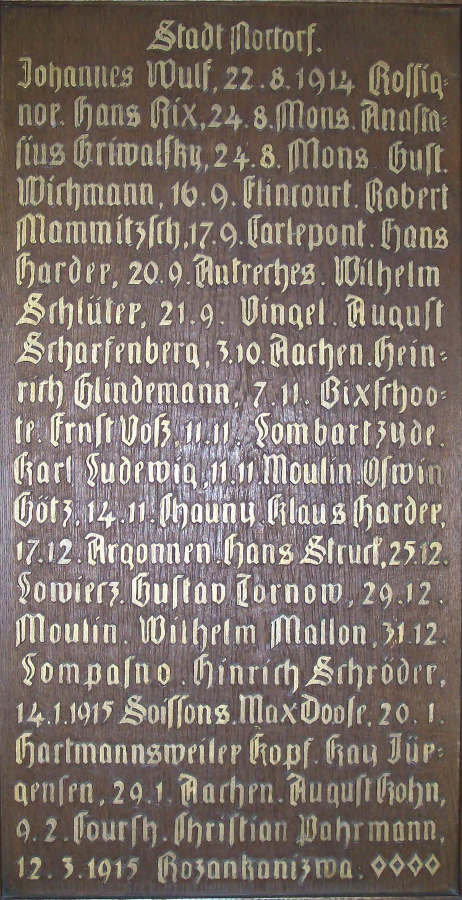 Stadt Nortorf.
Johannes Wulf, 22.8.1914 Rossig-
nor. Hans Rix, 24.8. Mons. Anasta-
sius Griwalsky, 24.8. Mons. Gust.
Wichmann, 16.9. Elincourt. Robert
Mammitzsch, 17.9. Carlepont. Hans
Harder, 20.9. Autreches. Wilhelm
Schlüter, 21.9. Vingel. August
Scharfenberg, 3.10. Aachen. Hein-
rich Glindemann, 7.11. Bixschoo-
te. Ernst Voß, 11.11. Lombartzyde.
Karl Ludewig, 11.11 Moulin. Oswin
Götz, 14.11. Chauny. Klaus Harder,
17.12. Argonnen. Hans Struck, 25.12.
Lowierz. Gustav Tornow, 29.12.
Moulin. Wilhelm Mallon, 31.12.
Lompasno. Hinrich Schröder,
14.1.1915 Soissons. Max Doose, 20.1.
Hartmannsweiler Kopf. Kay Jüe-
gensen, 29.1. Aachen. August Kohn,
9.2. Coursy. Christian Pahrmann,
12.3.1915 Rozankanizwa.